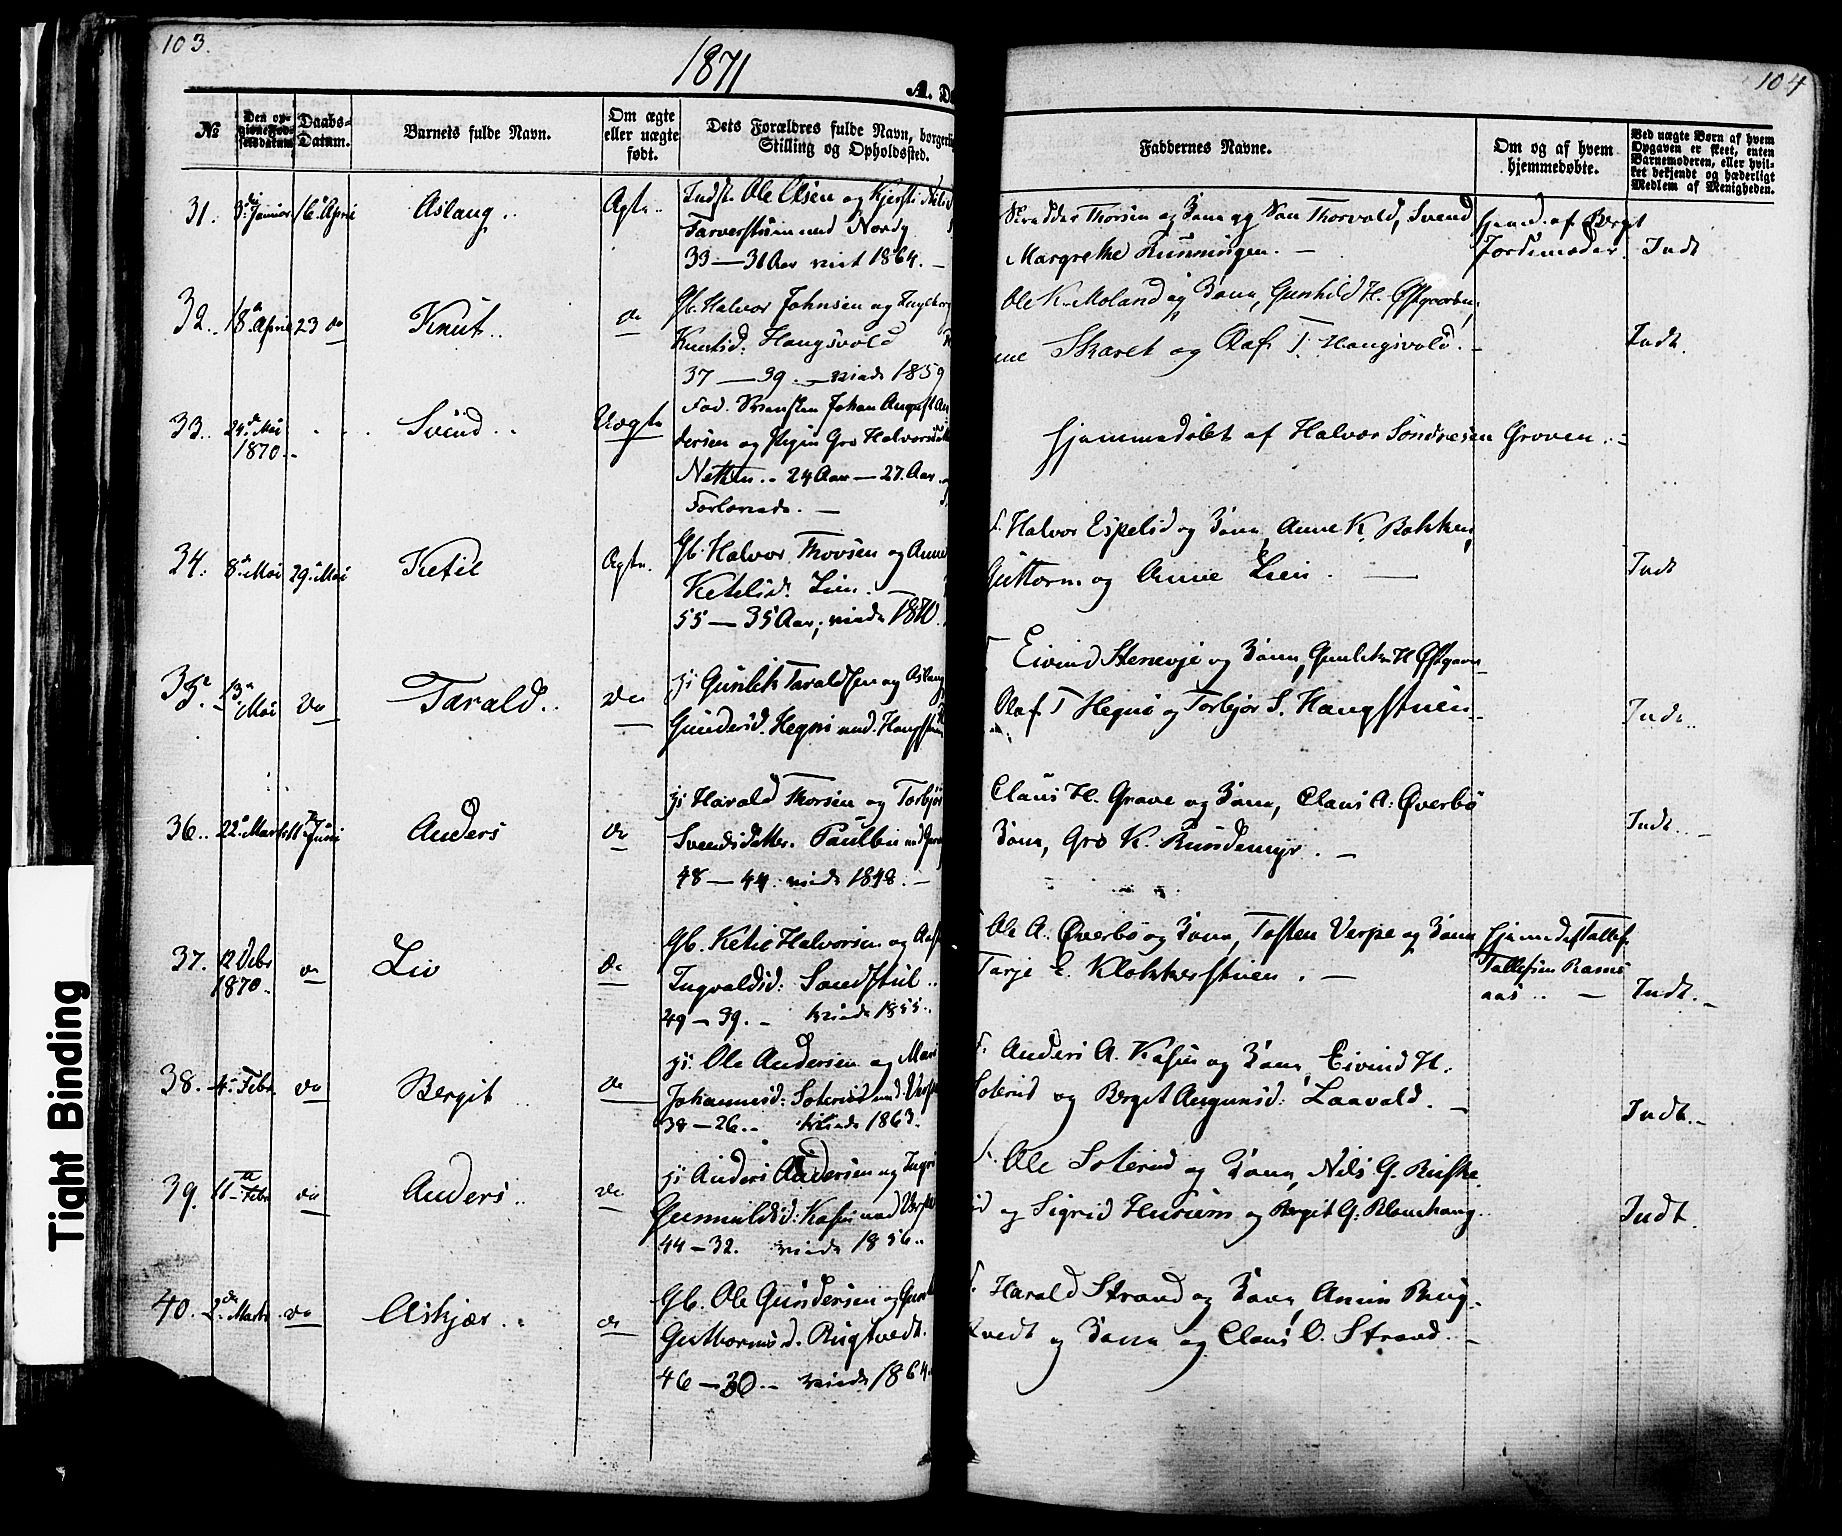 103.
1871
A. D
104
№
Den op-
givne Fød-
selsdatum
Daabs-
Datum.
Barnets fulde Navn.
Om ægte
eller uægte
født.
Dets Forældres fulde Navn, borgerli
Stilling og Opholdssted.
Faddernes Navne.
Om og af hvem
hjemmedøbte.
Ved uægte Børn af hvem
Opgaven er skeet, enten
Barnemoderen, eller hvil-
ket bekjendt og hæderligt
Medlem af Menigheden.
31. 3die Januar 16 April Aslaug Ægte Indst. Ole Olsen og Kjersti Nils
Farverstuen und Nordg
33 — 31 Aar viet 1864. —
Skrædder Thorsen og Kone og Søn Thorvald, Svend
Margrethe Running­en. —
Hjemd. af Bergit
Jordemoder Indt
32. 18 April 23 do Knut do Gb. Halvor Johnsen og Ingeborg
Knutsd. Haugsvold
37 — 39 — viede 1859
Ole K. Moland og Kone, Gunhild H. Østgaarden,
Skaret og Olaf T. Haugsvold. —
Indt.
33. 24de Mai
1870. Svend Uægte Fod. Svensken Johan August An
dersen og Pigen Gro Halvorsd
24 Aar — 27 Aar
Forlovede. —
Hjemmedøbt af Halvor Sondresen Groven
34. 8de Mai 29 Mai Ketil Ægte. Gb. Halvor Thovsen og Anne
Ketilsd. Lien. —
55 — 35 Aar, viede 1870.
F. Halvor Espelid og Kone, Anne K. Bakken,
Guttorm og Anne Lien. —
Indt
35. 13de Mai do Tarald do Hj Gunlek Taraldsen og Aslaug
Gundersd. Hegni und. Haugstuen
Eivind Stenevje og Kone, Gunlek H Østgaarden
Olaf T Hegni og Torbjør S. Haugstuen
Indt.
36. 22de Marts 11 Juni Anders do Hj Harald Thorsen og Torbjør
Svendsdatter. Paulbu und
48 — 44. viede 1848. —
Claus H. Grave og Kone, Claus A. Øverbø
Kone, Gro K. Rundemyr. —
Indt. —
37. 12 Debr
1870. do Liv do Gb. Ketil Halvorsen og Aas
Ingvaldsd: Sandstul
49 — 39. — viede 1855.
Ole A. Øverbø og Kone, Tosten Verpe og Kone
Tarje E. Klokkerstuen. —
Hjemdøbt Tallef
Tallefsen Rams
aas —
Indt. —
38. 4de Febr do Bergit do Hj. Ole Andersen og Mari
Johannesd: Soterud und. Verpe
38 — 26. viede 1863.
F. Anders A. Kasin og Kone, Eivind H.
Soterud og Bergit Augunsd: Laavald. —
Indt. —
39. 11te Febr do Anders do Hj Anders Andersen og Ingri
Gunnuldsd: Kasin und Verpe
44 — 32. viede 1856.
F. Ole Soterud og Kone, Nils G.
og Sigrid og Bergit G. Blomhaug
Indt.
40. 2de Marts do Askjær do Gb. Ole Gundersen og Gun
Guttormsd. Rugtvedt.
46 — 30 — viede 1864
F. Harald Strand og Kone, Rug-
tvedt og Kone og Claus O. Strand. —
Tight Binding